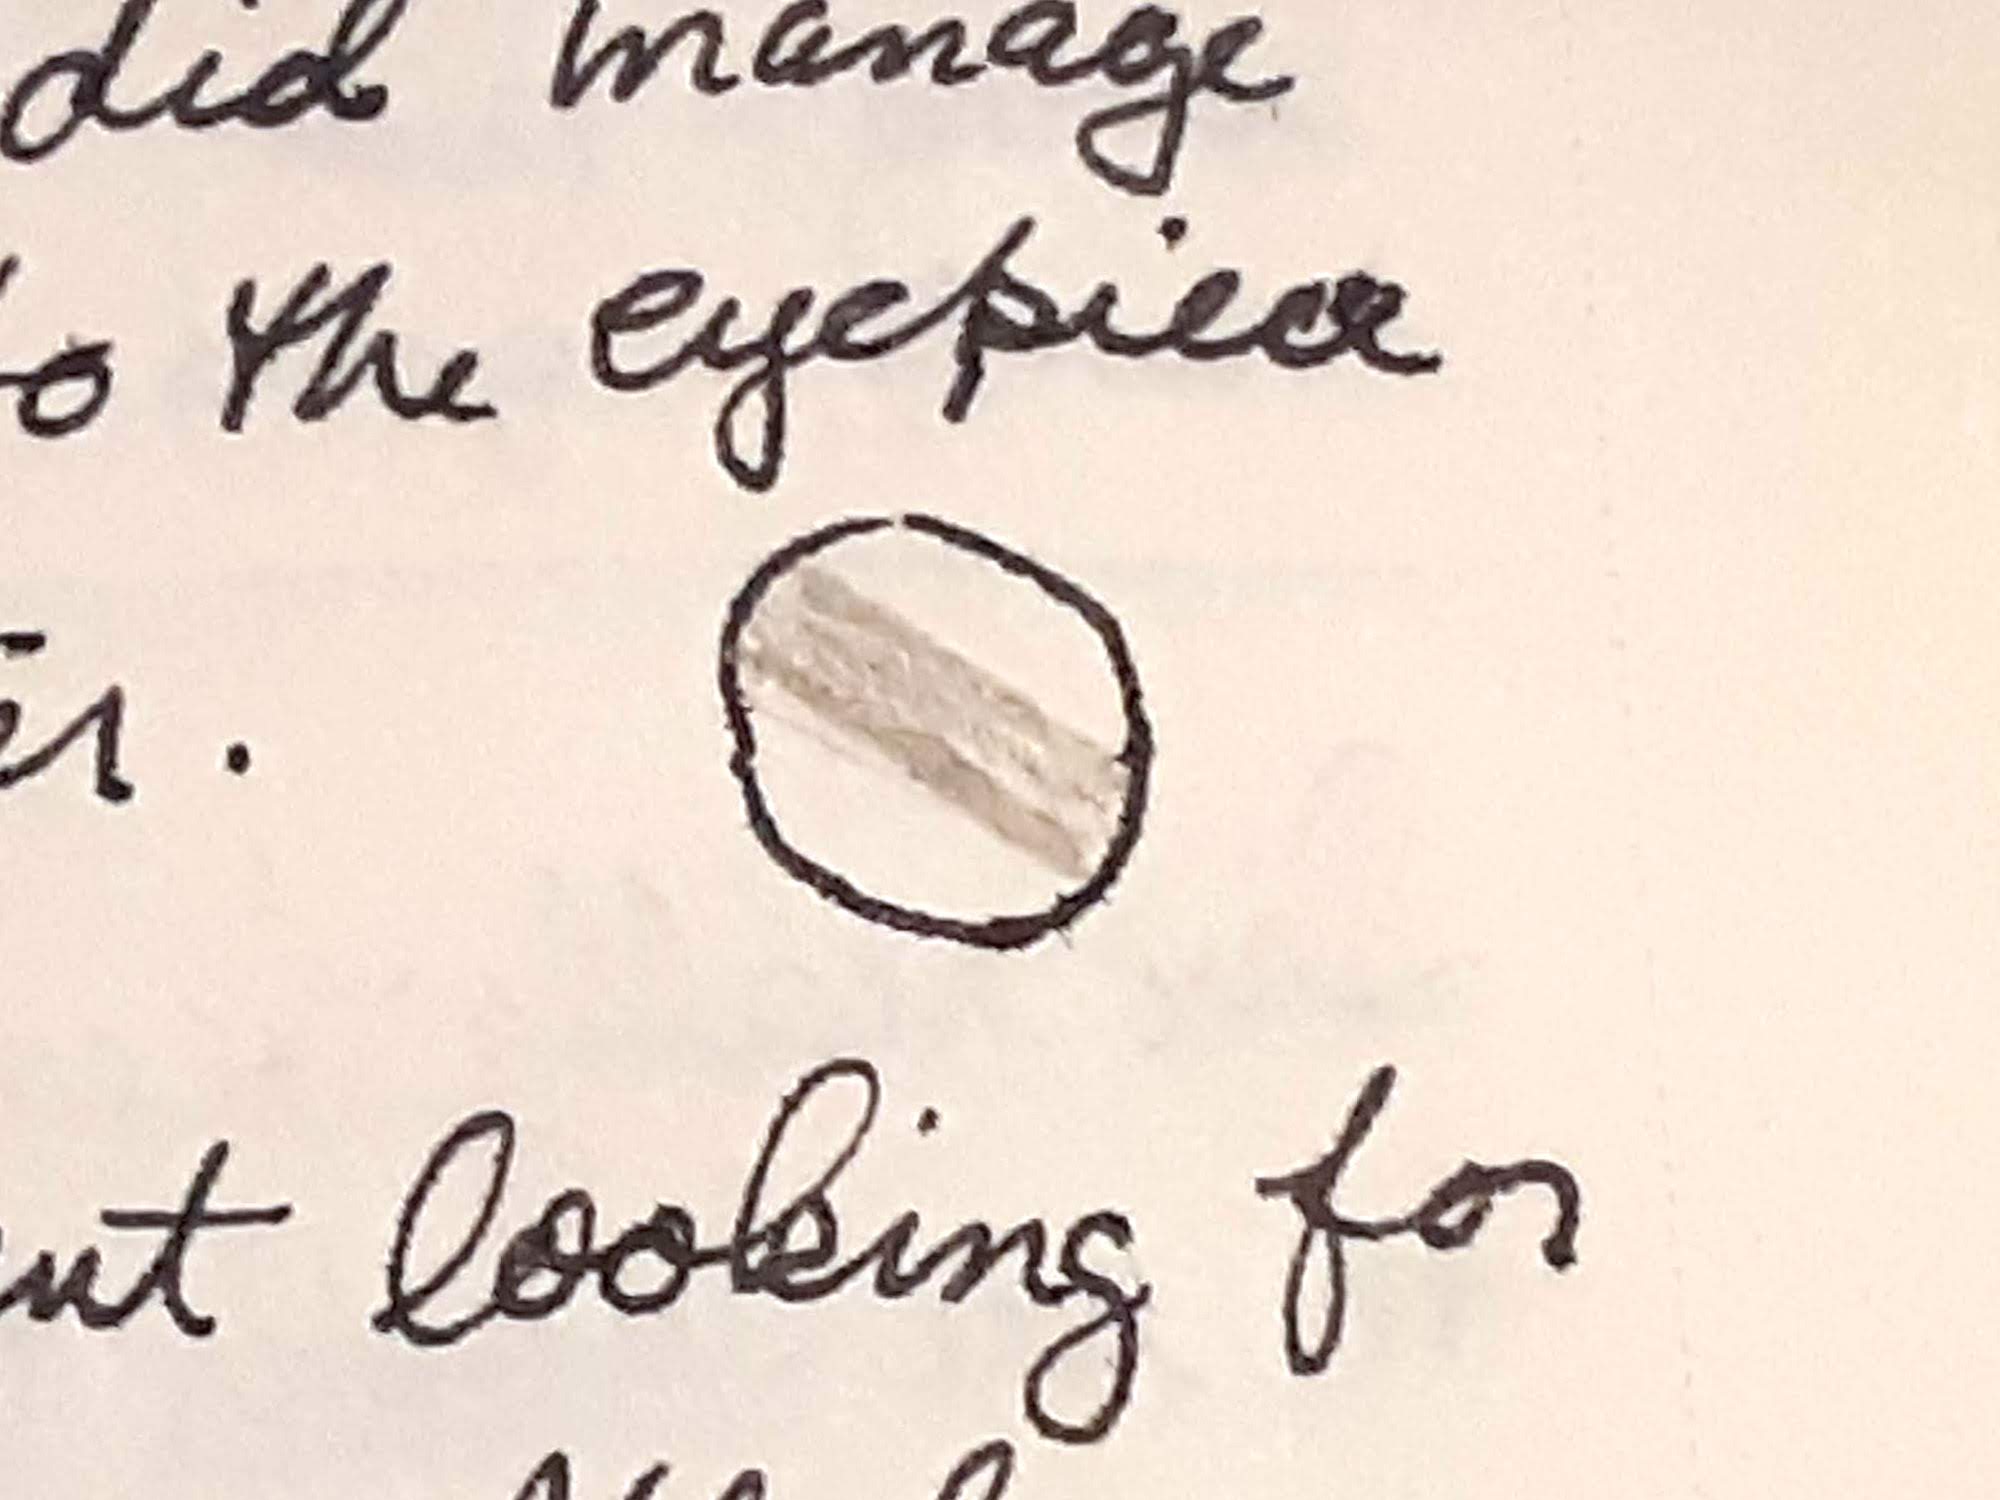 did manage
to the eyepiece
er.
ut looking for